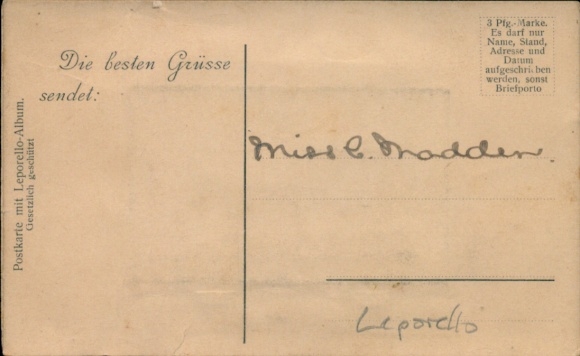 Die besten Grüsse
sendet:
Postkarte mit Leporello-Album.
Gesetzlich geschützt
3 Pfg.-Marke.
Es darf nur
Name, Stand,
Adresse und
Datum
aufgeschrieben
werden, sonst
Briefporto
Miss C. Madden.
Leporello